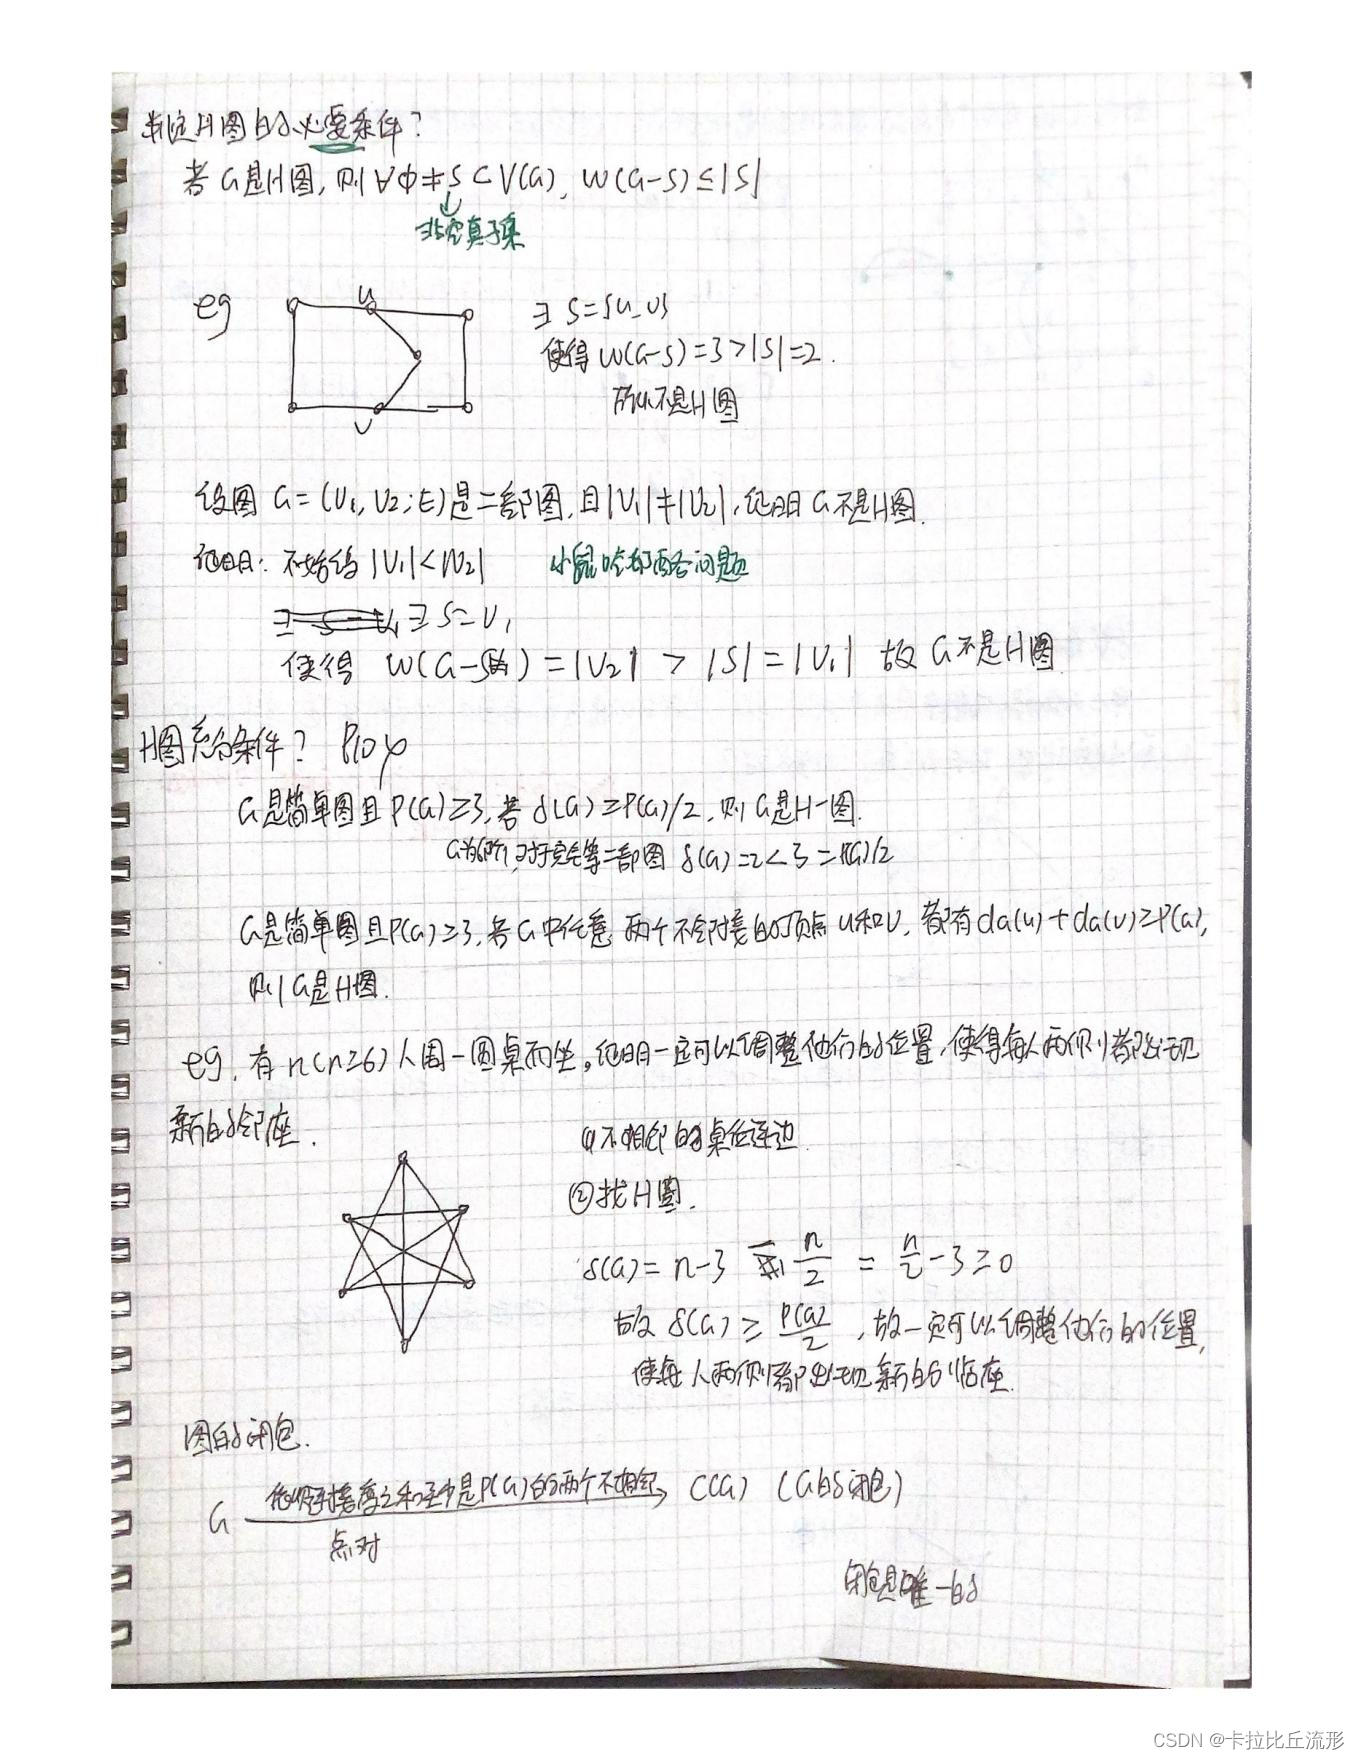 判定H图的必要条件？
若G是H图，则∀Φ≠S⊂V(G)，W(G-S)≤|S|
非空真子集
eg
u
v
∃ S={u,v}
使得 W(G-S)=3>|S|=2.
所以不是H图
设图 G=(V₁,V₂;E)是二部图，且|V₁|≠|V₂|，证明G不是H图.
证明：不妨设|V₁|<|V₂|
小鼠吃奶酪问题
∃ S=V₁
使得 W(G-S) =|V₂| > |S|=|V₁| 故G不是H图
H图充分条件？ P10φ
G是简单图且P(G)≥3，若δ(G)≥P(G)/2，则G是H-图.
G为6阶 完全等二部图 δ(G)=2<3=P(G)/2
G是简单图且P(G)≥3，若G中任意两个不邻接的顶点u和v，都有dG(u)+dG(v)≥P(G)，
则G是H图.
eg. 有n(n≥6)人围一圆桌而坐。证明一定可以调整他们的位置，使得每人两侧都出现
新的邻座.
①不相邻的桌位连边
②找H圈.
δ(G)=n-3 n/2 = n/2 -3≥0
故 δ(G) ≥ P(G)/2，故一定可以调整他们的位置，
使每人两侧都出现新的临座.
图的闭包.
G 依次邻接度之和至少是P(G)的两个不相邻 C(G) (G的闭包)
点对
闭包是唯一的
CSDN @卡拉比丘流形